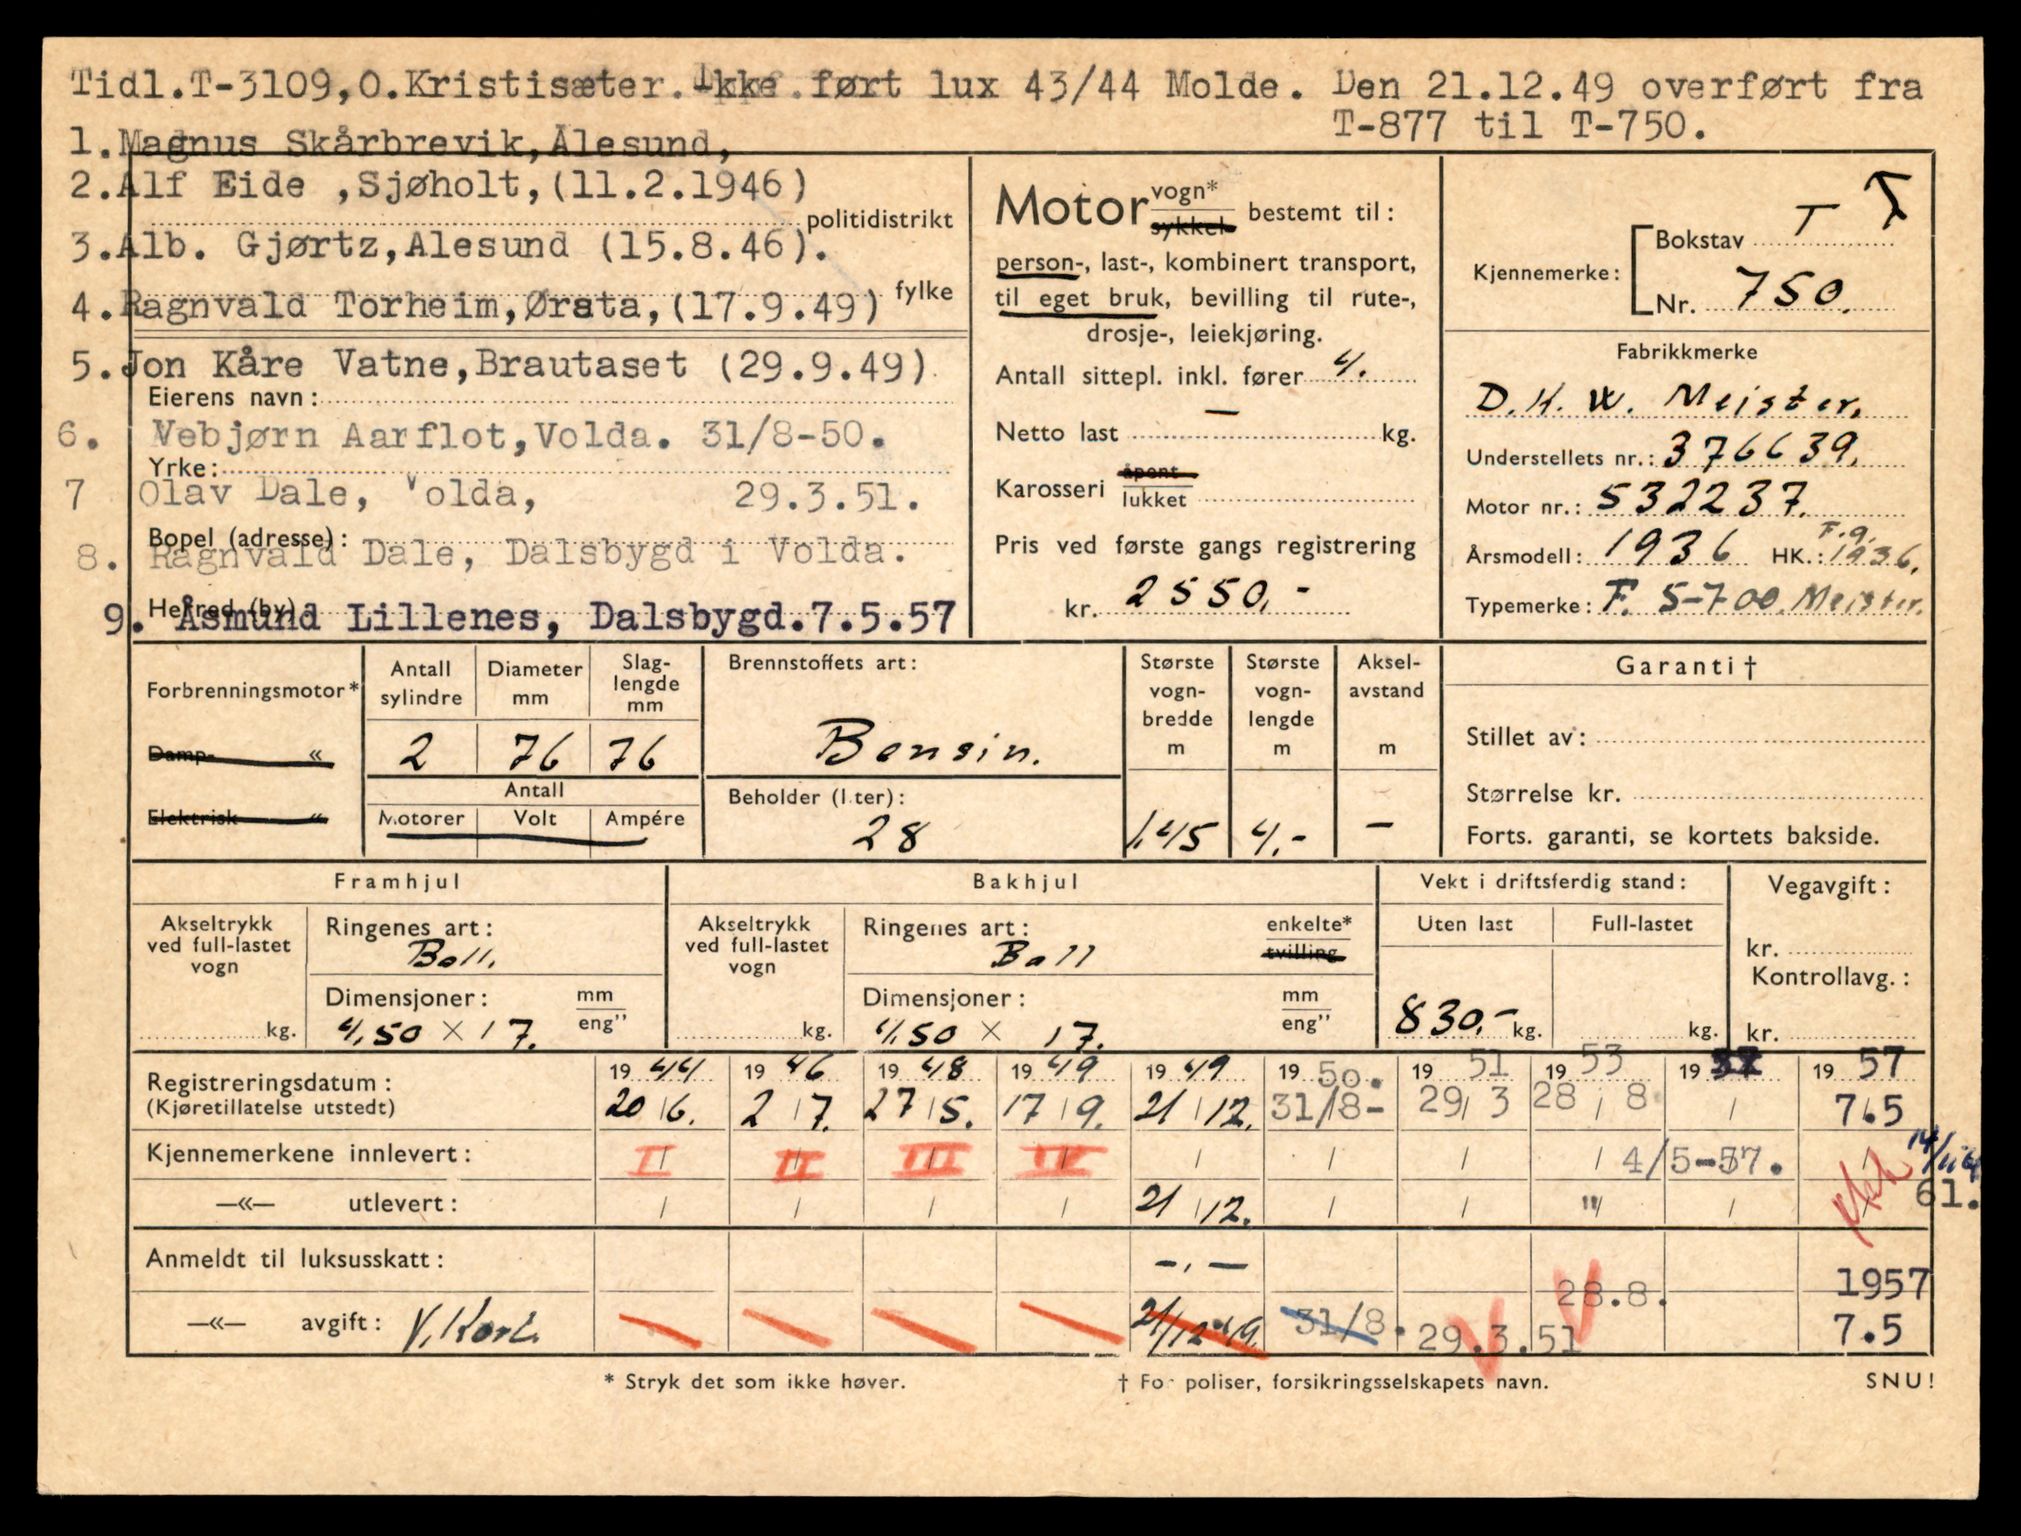 Tidl.T-3109,O.Kristisæter. Ikke ført lux 43/44 Molde. Den 21.12.49 overført fra
T-877 til T-750.
1.Magnus Skårbrevik,Ålesund,
2.Alf Eide ,Sjøholt,(11.2.1946)
politidistrikt
3.Alb. Gjørtz,Alesund (15.8.46).
fylke
4.Ragnvald Torheim,Ørsta,(17.9.49)
5.Jon Kåre Vatne,Brautaset (29.9.49)
Eierens navn:
6. Vebjørn Aarflot,Volda. 31/8-50.
Yrke:
7 Olav Dale, Volda, 29.3.51.
Bopel (adresse):
8. Ragnvald Dale, Dalsbygd i Volda.
Herred (by)
9. Åsmund Lillenes, Dalsbygd.7.5.57
Motor vogn* sykkel bestemt til:
person-, last-, kombinert transport,
til eget bruk, bevilling til rute-,
drosje-, leiekjøring.
Antall sittepl. inkl. fører 4.
Netto last — kg.
Karosseri åpent lukket
Pris ved første gangs registrering
kr. 2550,-
Kjennemerke:
Bokstav T
Nr. 750.
Fabrikkmerke
D.K.W. Meister.
Understellets nr.: 376639.
Motor nr.: 532237.
Årsmodell: 1936 HK.: F.9. 1936.
Typemerke: F. 5-700 Meister.
Forbrenningsmotor*
Damp- «
Elektrisk «
Antall sylindre
Diameter mm
Slag-lengde mm
2 76 76
Antall
Motorer Volt Ampére
Brennstoffets art:
Bensin.
Beholder (liter):
28
Største vogn-bredde m
Største vogn-lengde m
Aksel-avstand m
1,45 4,- —
Garanti †
Stillet av:
Størrelse kr.
Forts. garanti, se kortets bakside.
Framhjul
Akseltrykk ved full-lastet vogn
kg.
Ringenes art:
Ball.
Dimensjoner: mm eng”
4,50 × 17.
Bakhjul
Akseltrykk ved full-lastet vogn
kg.
Ringenes art: enkelte* tvilling
Ball
Dimensjoner: mm eng”
4,50 × 17.
Vekt i driftsferdig stand:
Uten last Full-lastet
830,- kg. kg.
Vegavgift:
kr.
Kontrollavg.:
kr.
Registreringsdatum: 1944 1946 1948 1949 1949 1950. 1951 1953 19 1957
(Kjøretillatelse utstedt) 20/6. 2/7. 27/5. 17/9. 21/12. 31/8- 29/3 28/8. / 7.5
Kjennemerkene innlevert: I II III IV / / / / 4/5-57. 14/11 61.
—«— utlevert: / / / / 21/12. / / " /
Anmeldt til luksusskatt: -.— 1957
—«— avgift: V.Kort. 21/12-49. 31/8. 29.3.51 28.8. 7.5
* Stryk det som ikke høver.
† For poliser, forsikringsselskapets navn.
SNU!